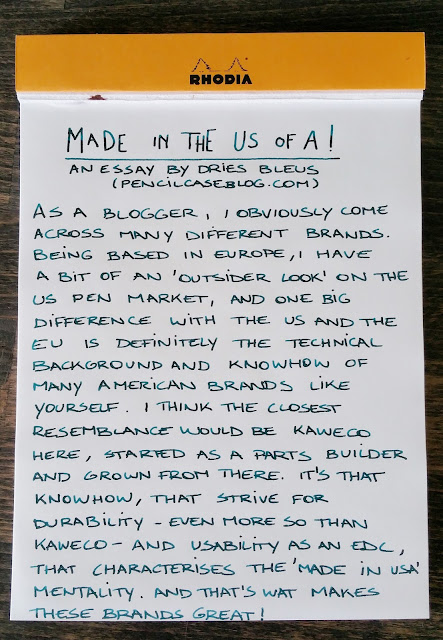 RHODIA
MADE IN THE US OF A!
AN ESSAY BY DRIES BLEUS
(PENCILCASEBLOG.COM)
AS A BLOGGER, I OBVIOUSLY COME
ACROSS MANY DIFFERENT BRANDS.
BEING BASED IN EUROPE, I HAVE
A BIT OF AN 'OUTSIDER LOOK' ON THE
US PEN MARKET, AND ONE BIG
DIFFERENCE WITH THE US AND THE
EU IS DEFINITELY THE TECHNICAL
BACKGROUND AND KNOWHOW OF
MANY AMERICAN BRANDS LIKE
YOURSELF. I THINK THE CLOSEST
RESEMBLANCE WOULD BE KAWECO
HERE, STARTED AS A PARTS BUILDER
AND GROWN FROM THERE. IT'S THAT
KNOWHOW, THAT STRIVE FOR
DURABILITY - EVEN MORE SO THAN
KAWECO - AND USABILITY AS AN EDC,
THAT CHARACTERISES THE 'MADE IN USA'
MENTALITY. AND THAT'S WAT MAKES
THESE BRANDS GREAT!